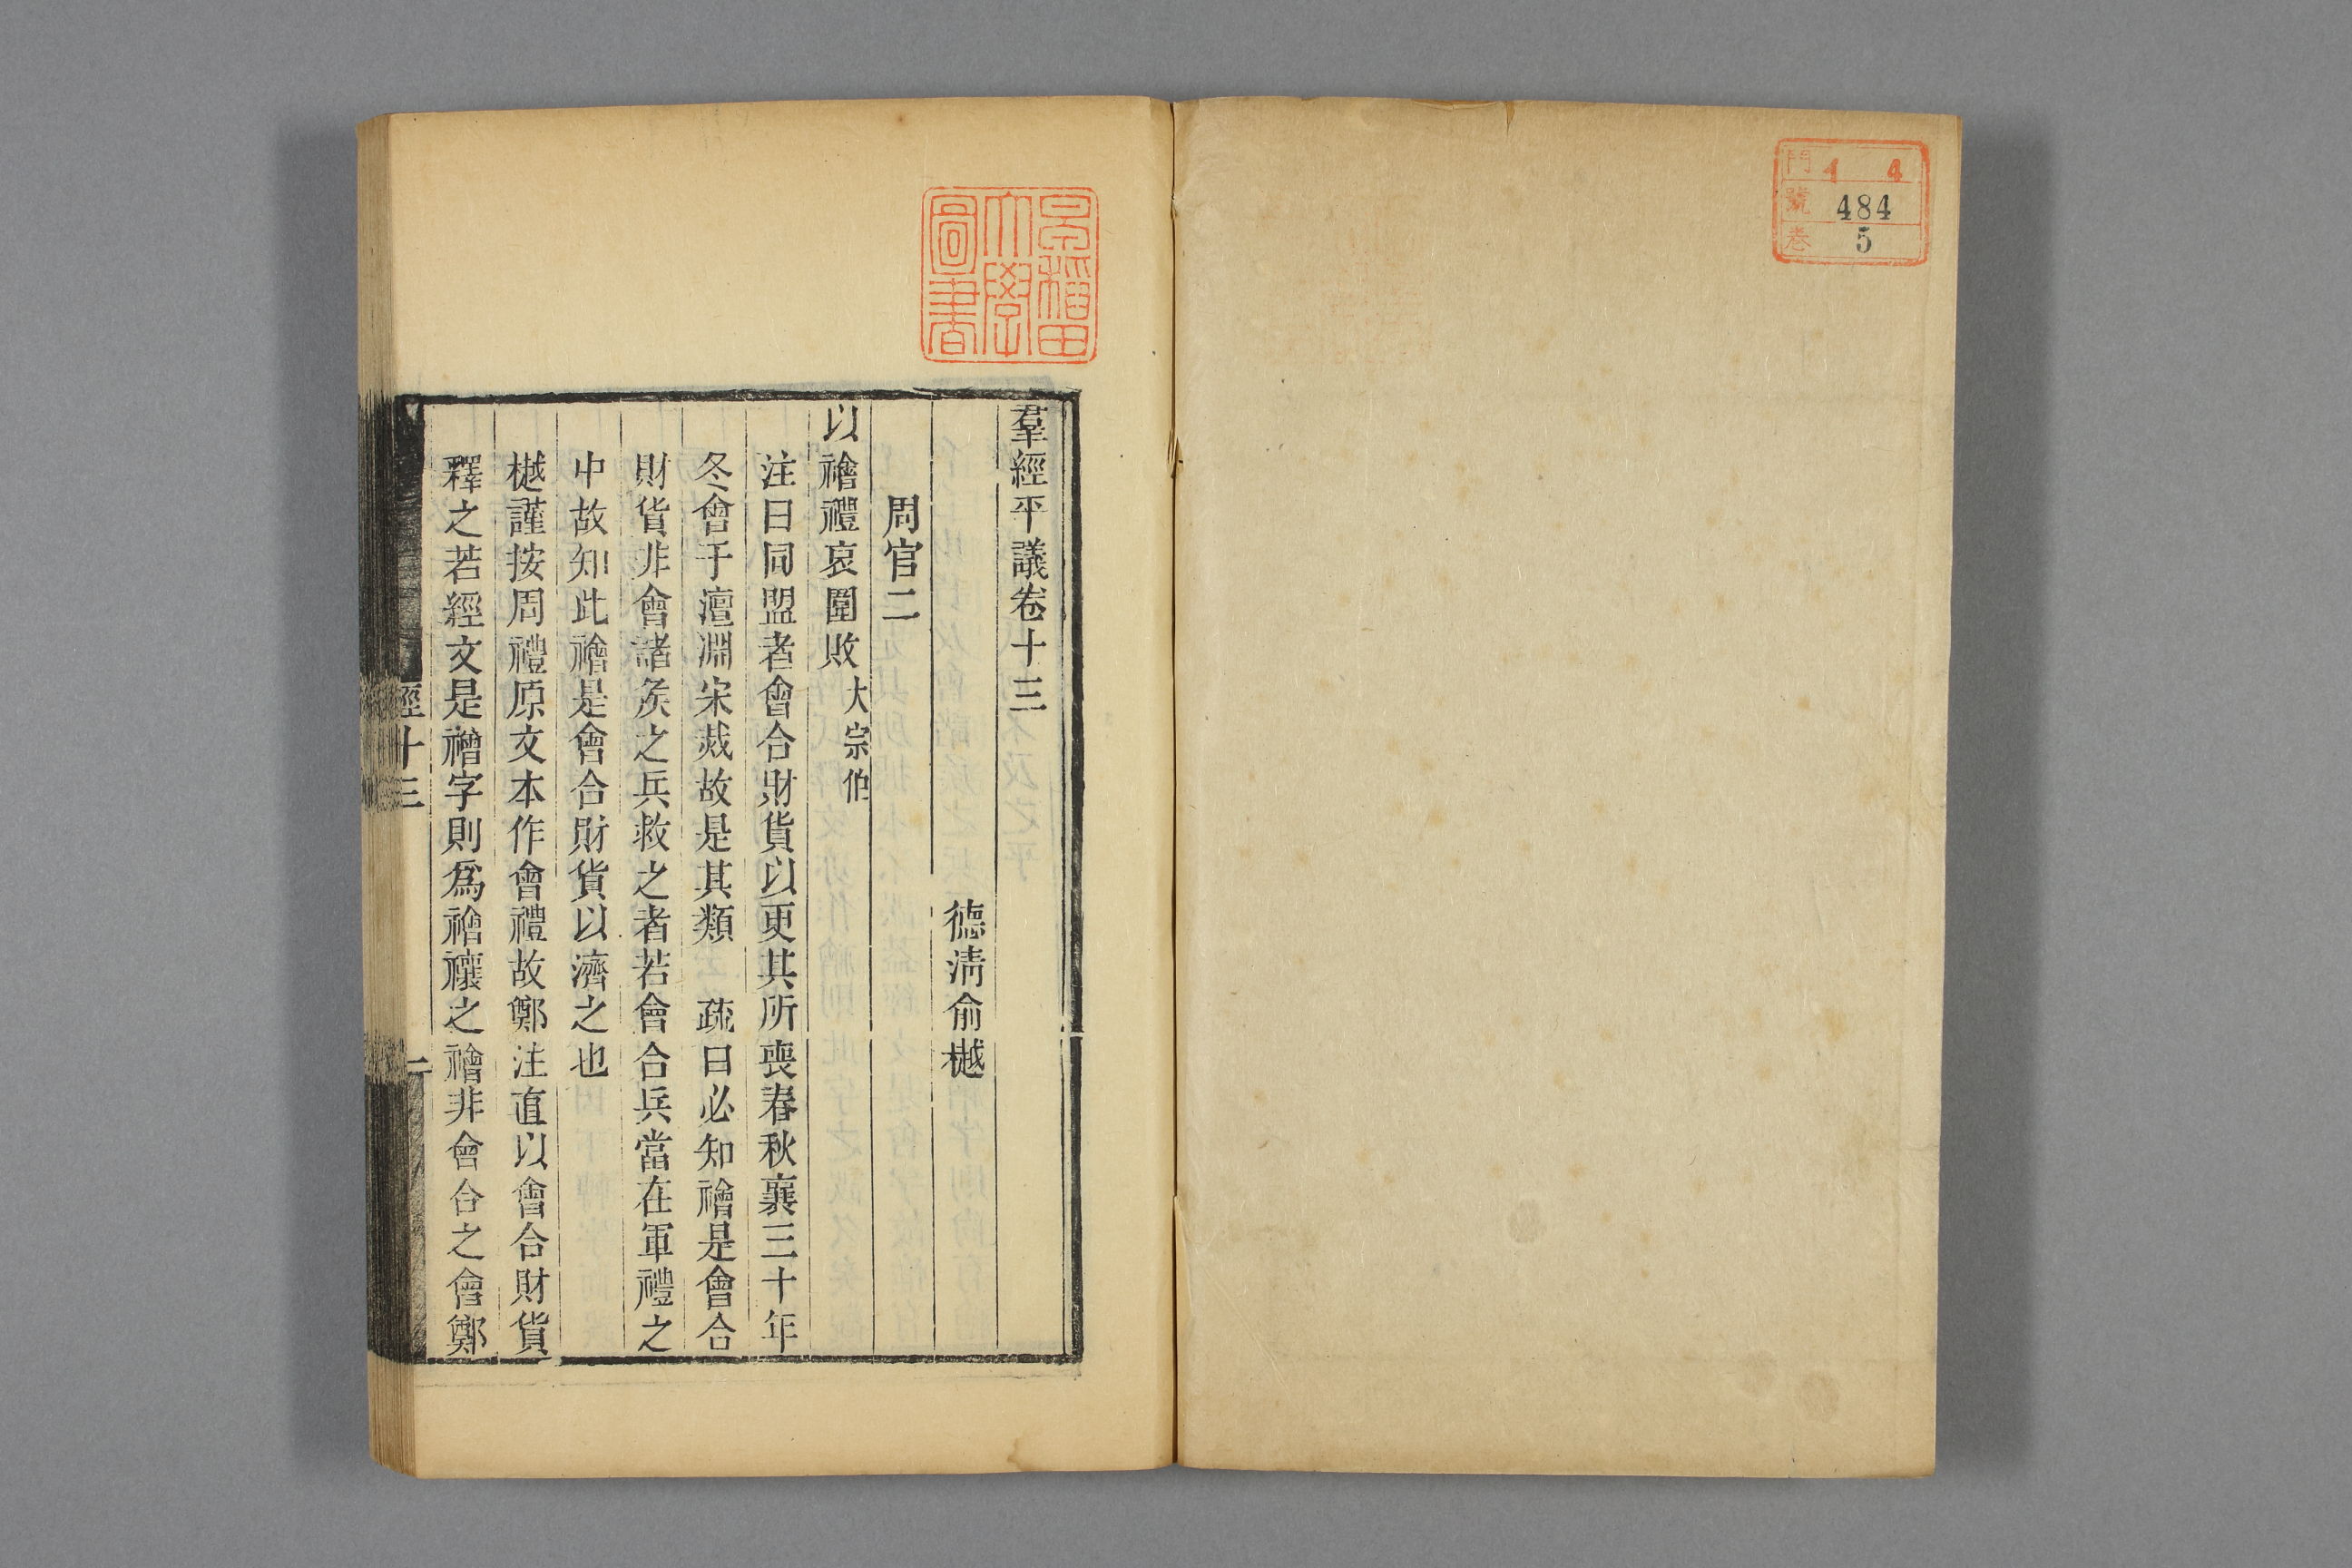 門 14
號 484
卷 5
早稻田
大學
圖書
羣經平議卷十三
德清俞樾
周官二
以禬禮哀圍敗 大宗伯
注曰同盟者會合財貨以更其所喪春秋襄三十年
冬會于澶淵宋烖故是其類 疏曰必知禬是會合
財貨非會諸矦之兵救之者若會合兵當在軍禮之
中故知此禬是會合財貨以濟之也
樾謹按周禮原文本作會禮故鄭注直以會合財貨
釋之若經文是禬字則爲禬禳之禬非會合之會鄭
經十三
一